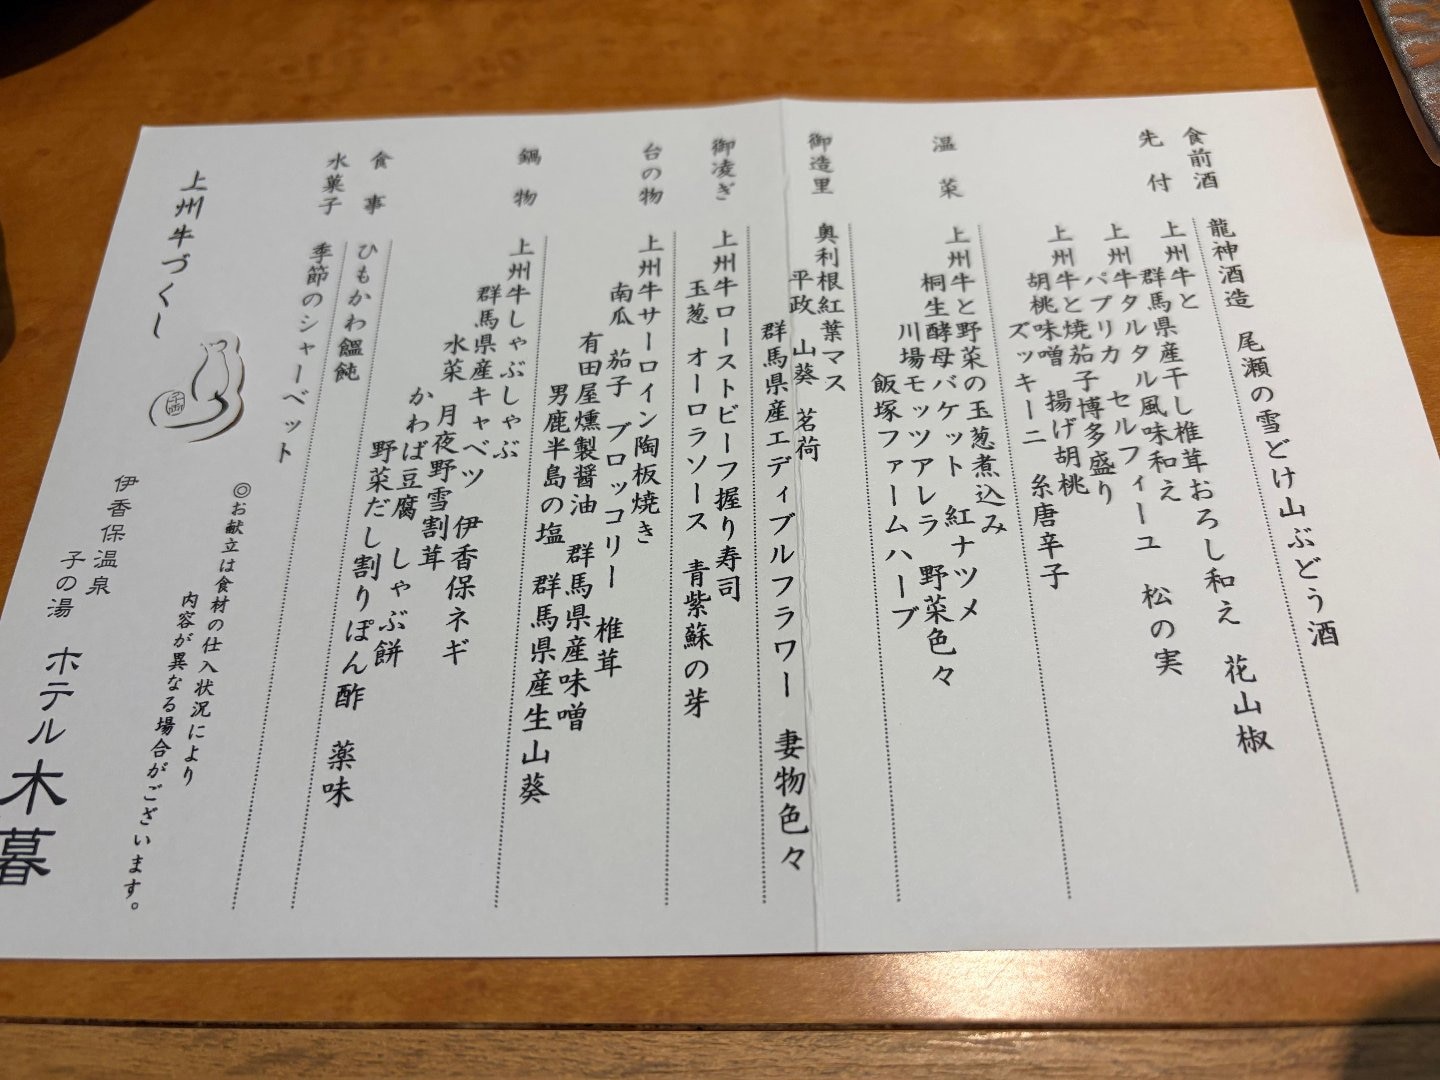 食前酒 龍神酒造 尾瀬の雪どけ山ぶどう酒
先付 上州牛と群馬県産干し椎茸おろし和え 花山椒
上州牛タルタル風味和え 松の実
パプリカ セルフィーユ
上州牛と焼茄子博多盛り
胡桃味噌 揚げ胡桃 糸唐辛子
ズッキーニ
温菜 上州牛と野菜の玉葱煮込み
桐生酵母バケット 紅ナツメ
川場モッツアレラ 野菜色々
飯塚ファームハーブ
御造里 奥利根紅葉マス
平政 山葵 茗荷
群馬県産エディブルフラワー 妻物色々
御凌ぎ 上州牛ローストビーフ握り寿司
玉葱 オーロラソース 青紫蘇の芽
台の物 上州牛サーロイン陶板焼き
南瓜 茄子 ブロッコリー 椎茸
有田屋燻製醤油 群馬県産味噌
男鹿半島の塩 群馬県産生山葵
鍋物 上州牛しゃぶしゃぶ
群馬県産キャベツ 伊香保ネギ
水菜 月夜野雪割茸
かわば豆腐 しゃぶ餅
野菜だし割りぽん酢 薬味
食事 ひもかわ饂飩
水菓子 季節のシャーベット
上州牛づくし
◎お献立は食材の仕入状況により
内容が異なる場合がございます。
伊香保温泉
子の湯 ホテル木暮